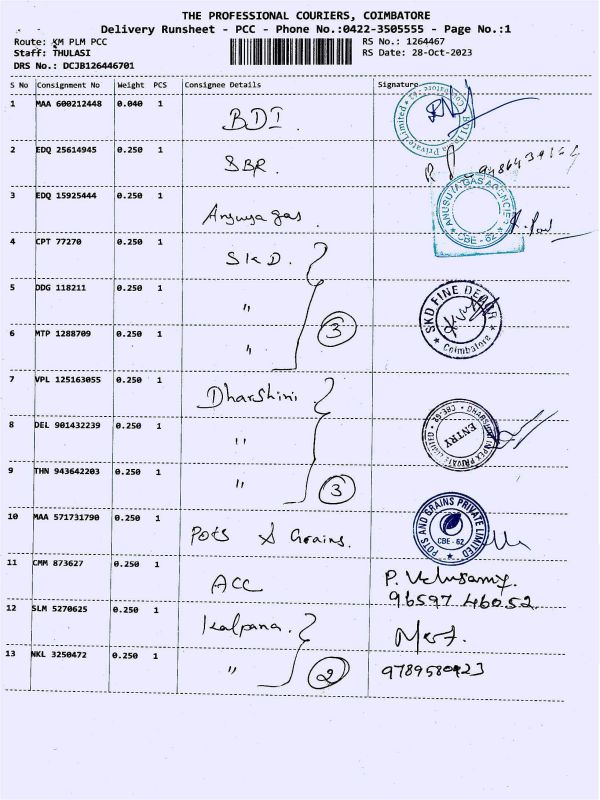 THE PROFESSIONAL COURIERS, COIMBATORE
Delivery Runsheet - PCC - Phone No.:0422-3505555 - Page No.:1
Route: KM PLM PCC
RS No.: 1264467
Staff: THULASI
RS Date: 28-Oct-2023
DRS No.: DCJB126446701
S No Consignment No Weight PCS Consignee Details Signature
1 MAA 600212448 0.040 1 BDI
2 EDQ 25614945 0.250 1 SBR
3 EDQ 15925444 0.250 1 Anjuya gas
ANUSUYA GAS AGENCIES
CBE - 62
4 CPT 77270 0.250 1 SKD.
5 DDG 118211 0.250 1 "
SKD FINE DECOR
Coimbatore
6 MTP 1288709 0.250 1 " 3
7 VPL 125163055 0.250 1 Dharshini
8 DEL 901432239 0.250 1 "
ENTRY
9 THN 943642203 0.250 1 " 3
10 MAA 571731790 0.250 1 Pots & Grains.
POTS AND GRAINS PRIVATE LIMITED
CBE - 62
11 CMM 873627 0.250 1 ACC P. Velusamy.
96597 46052
12 SLM 5270625 0.250 1 Kalpana.
13 NKL 3250472 0.250 1 " 2 9789580923